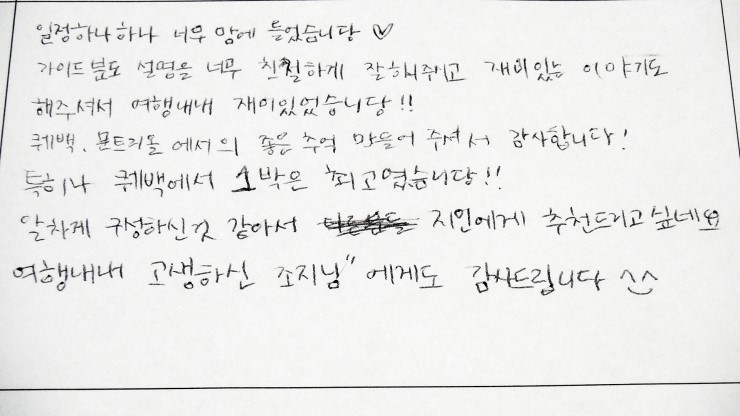 일정하나하나 너무 맘에 들었습니다 ♡
가이드분도 설명을 너무 친절하게 잘해주시고 재미있는 이야기도
해주셔서 여행내내 재미있었습니당!!
퀘백, 몬트리올에서의 좋은 추억 만들어 주셔서 감사합니다!
특히나 퀘백에서 1박은 최고였습니당!!
알차게 구성하신것 같아서 지인에게 추천드리고 싶네요
여행내내 고생하신 조지님" 에게도 감사드립니다 ^^